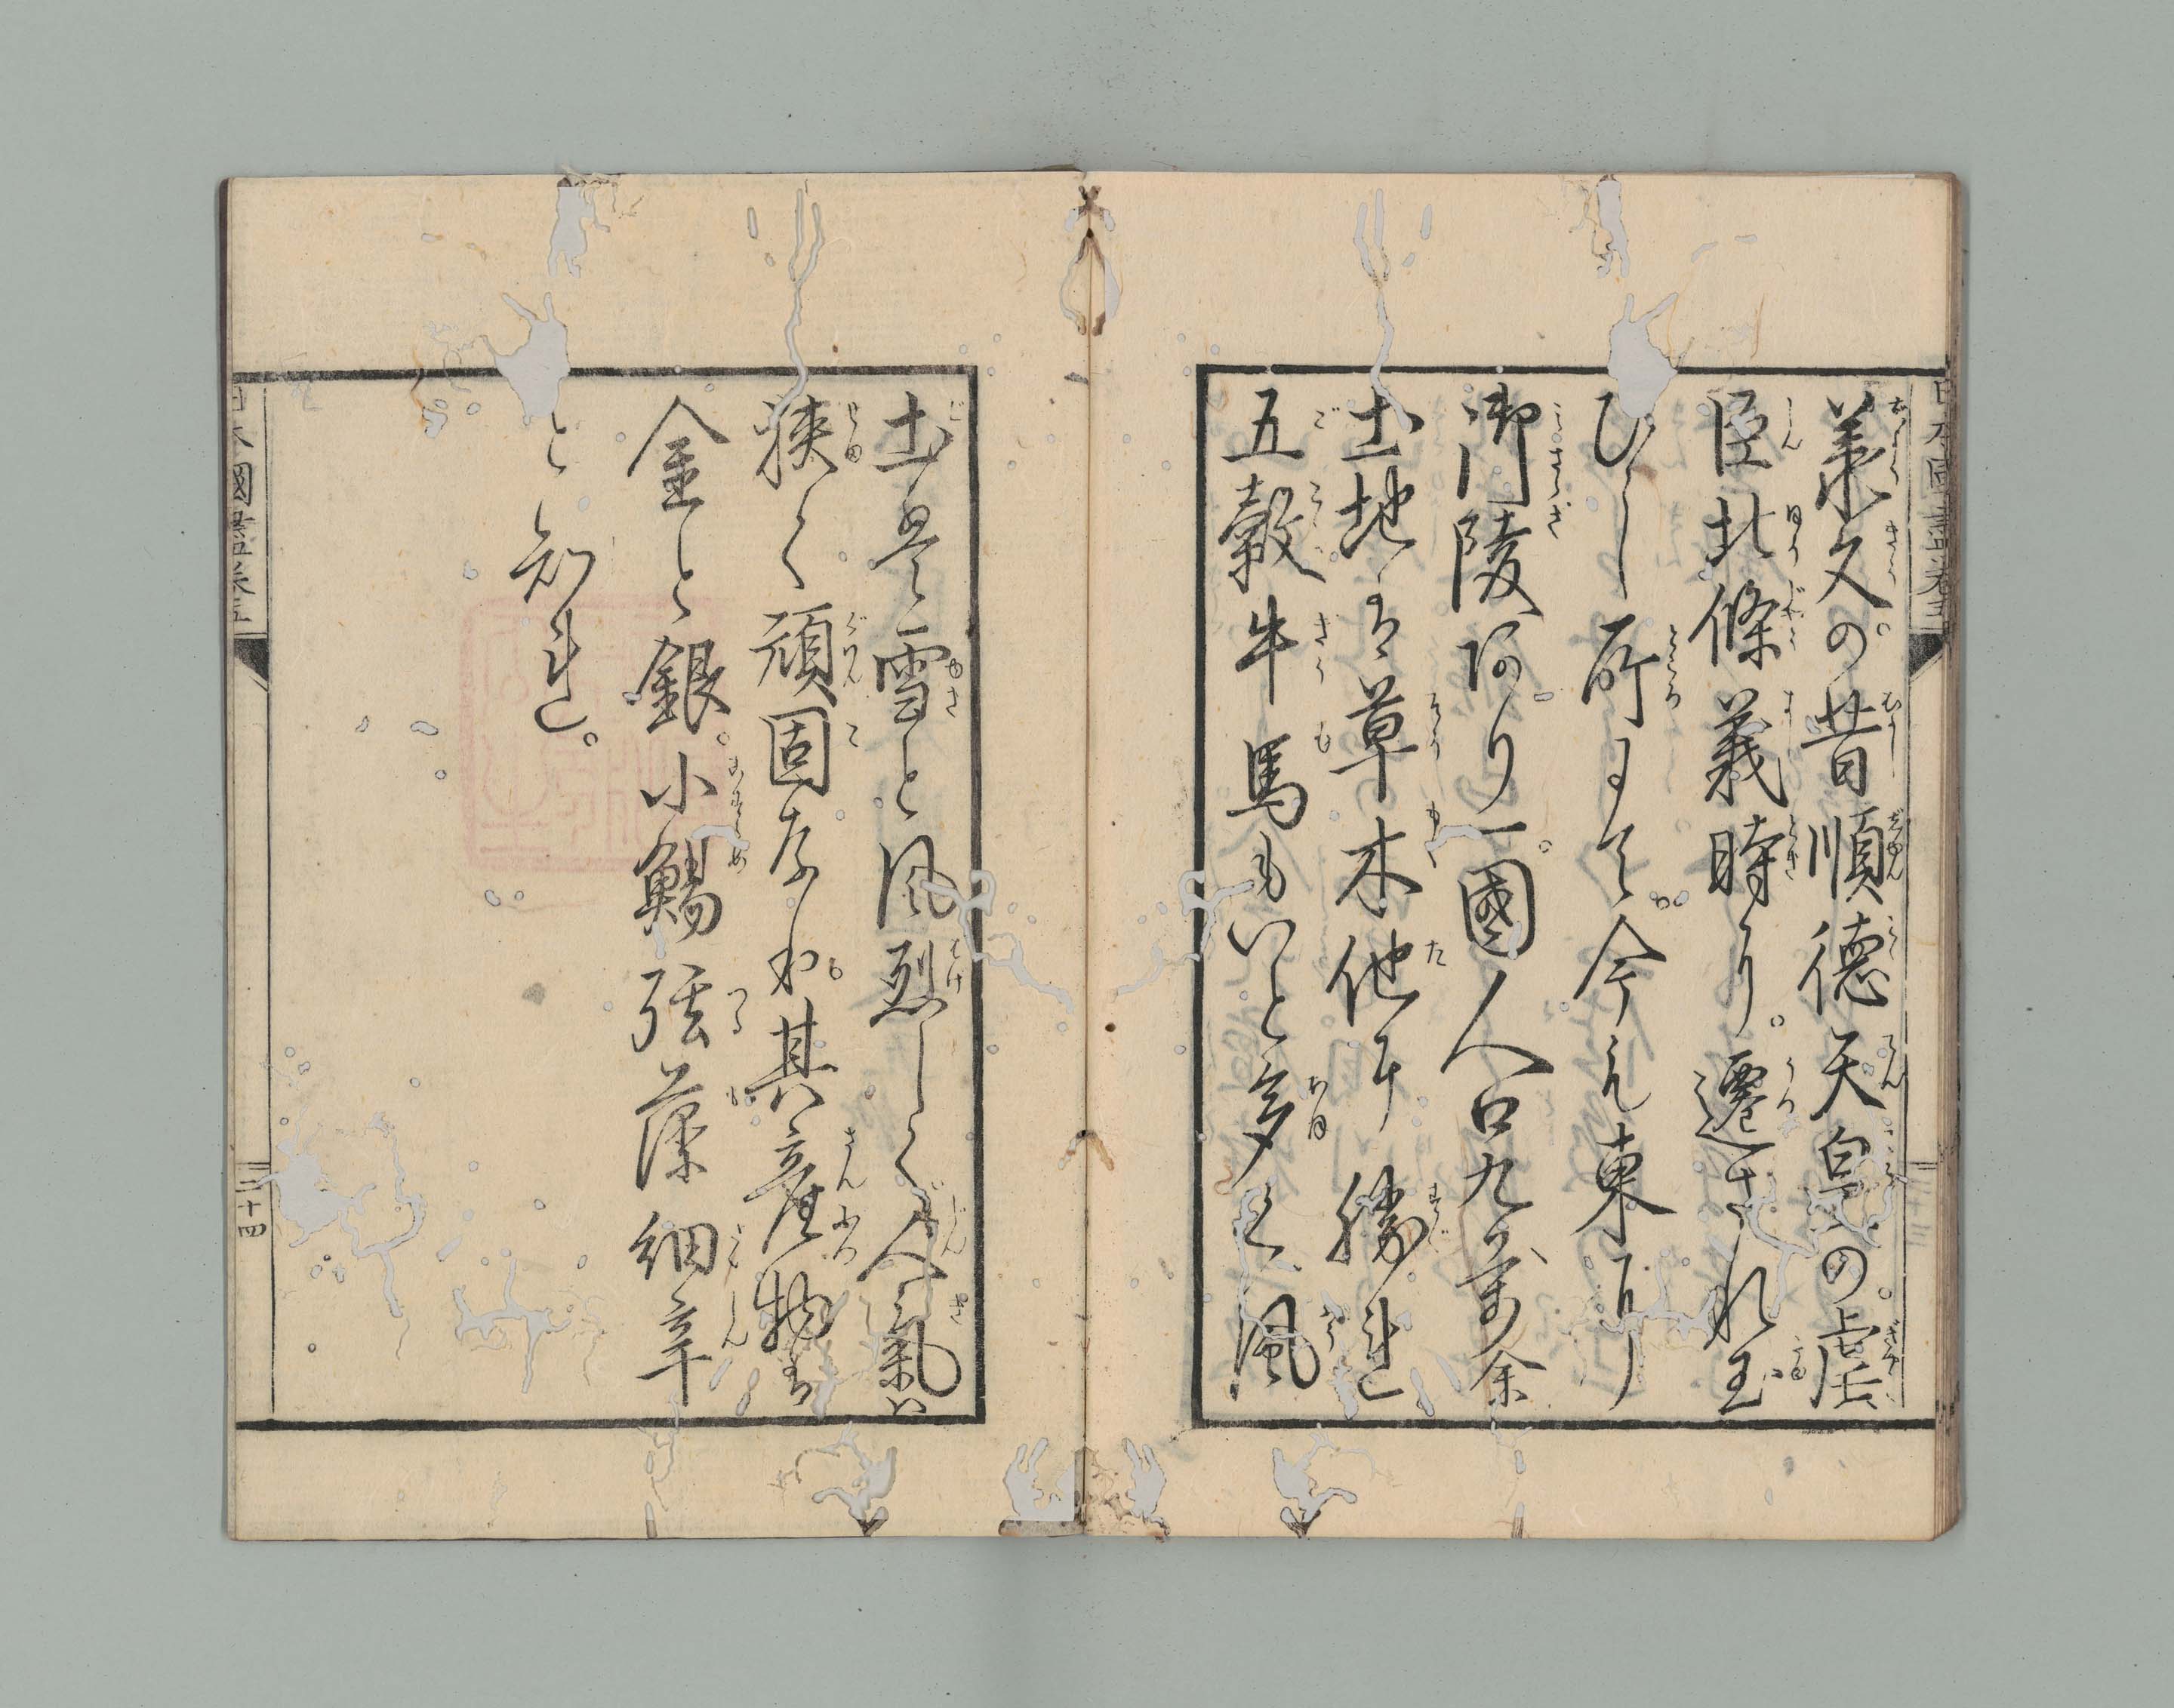 承久の昔順徳天皇の虐
臣北條義時より遷され玉
ひし所にて今も東に
御陵あり一國人口九万余
土地は草木他に勝れ
五穀牛馬もいと多く風
土は雪と風烈しく人氣は
狭く頑固なり其産物は
金と銀小鰑弦藻細辛
と知れ
日本國盡巻五
三十四